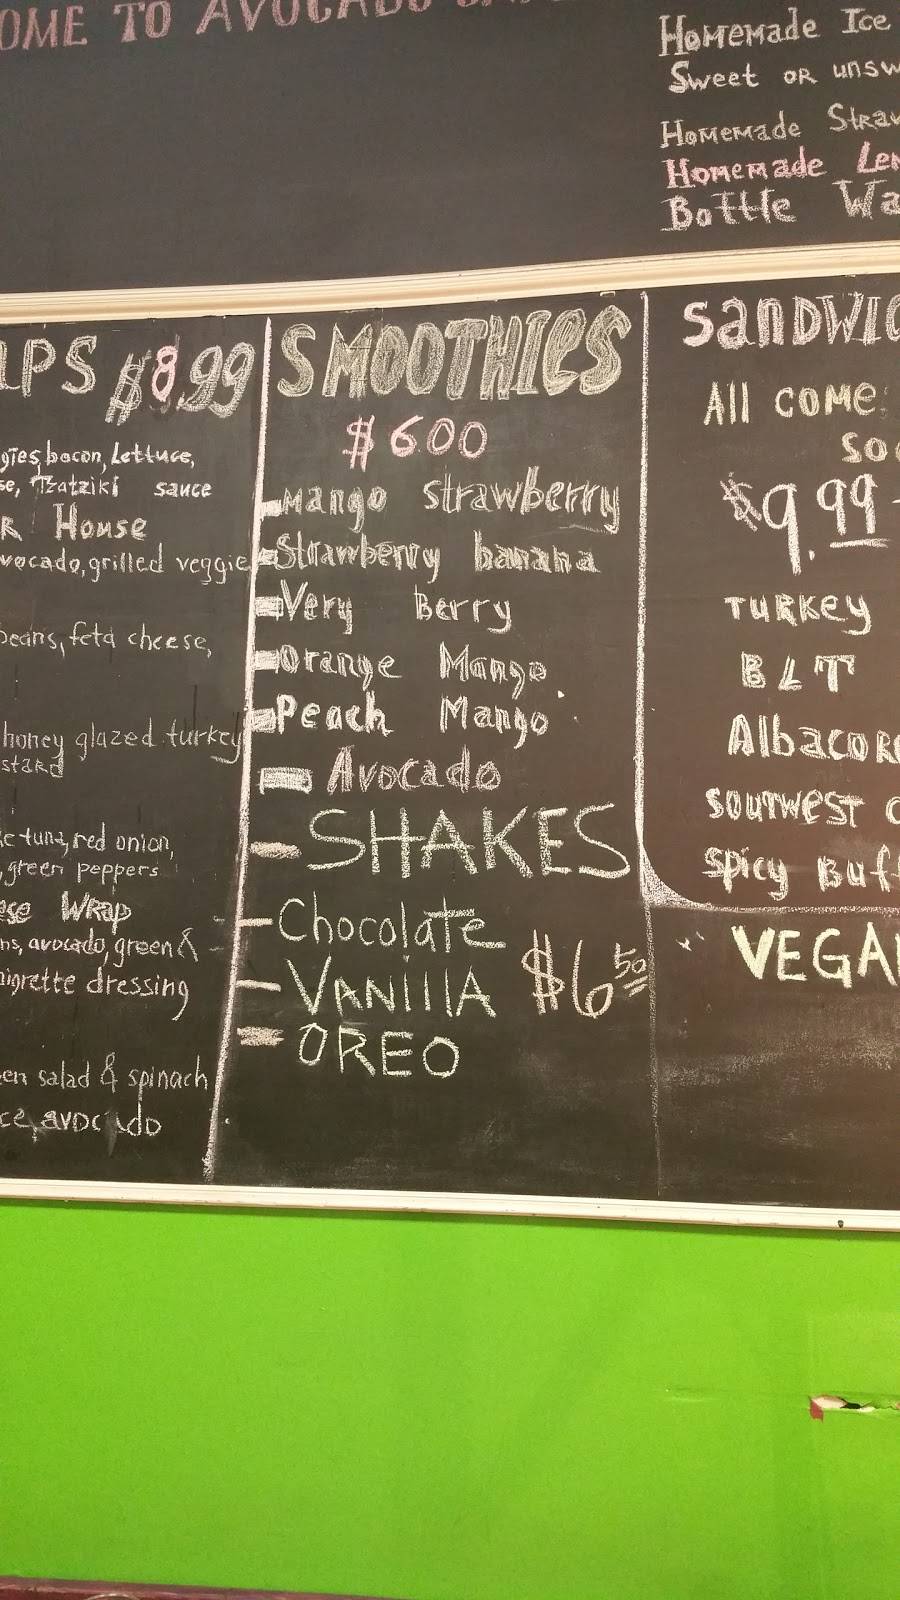 OME TO AVOCADO
Homemade Ice
Sweet or unsw
Homemade Straw
Homemade Lem
Bottle Wa
APS $8.99
gies, bacon, Lettuce,
se, Tzatziki sauce
R House
vocado, grilled veggie
beans, feta cheese,
honey glazed turkey
stard
ic tuna, red onion,
, green peppers
ese Wrap
ns, avocado, green &
nigrette dressing
en salad & spinach
ce, avocado
SMOOTHIES
$6.00
- Mango Strawberry
- Strawberry banana
- Very Berry
- Orange Mango
- Peach Mango
- Avocado
- SHAKES
- Chocolate
- VANillA $6.50
- OREO
SANDWIC
All COME
SO
$9.99
TURKEY
BLT
AlbacORe
SOUTWEST C
Spicy Buff
VEGA